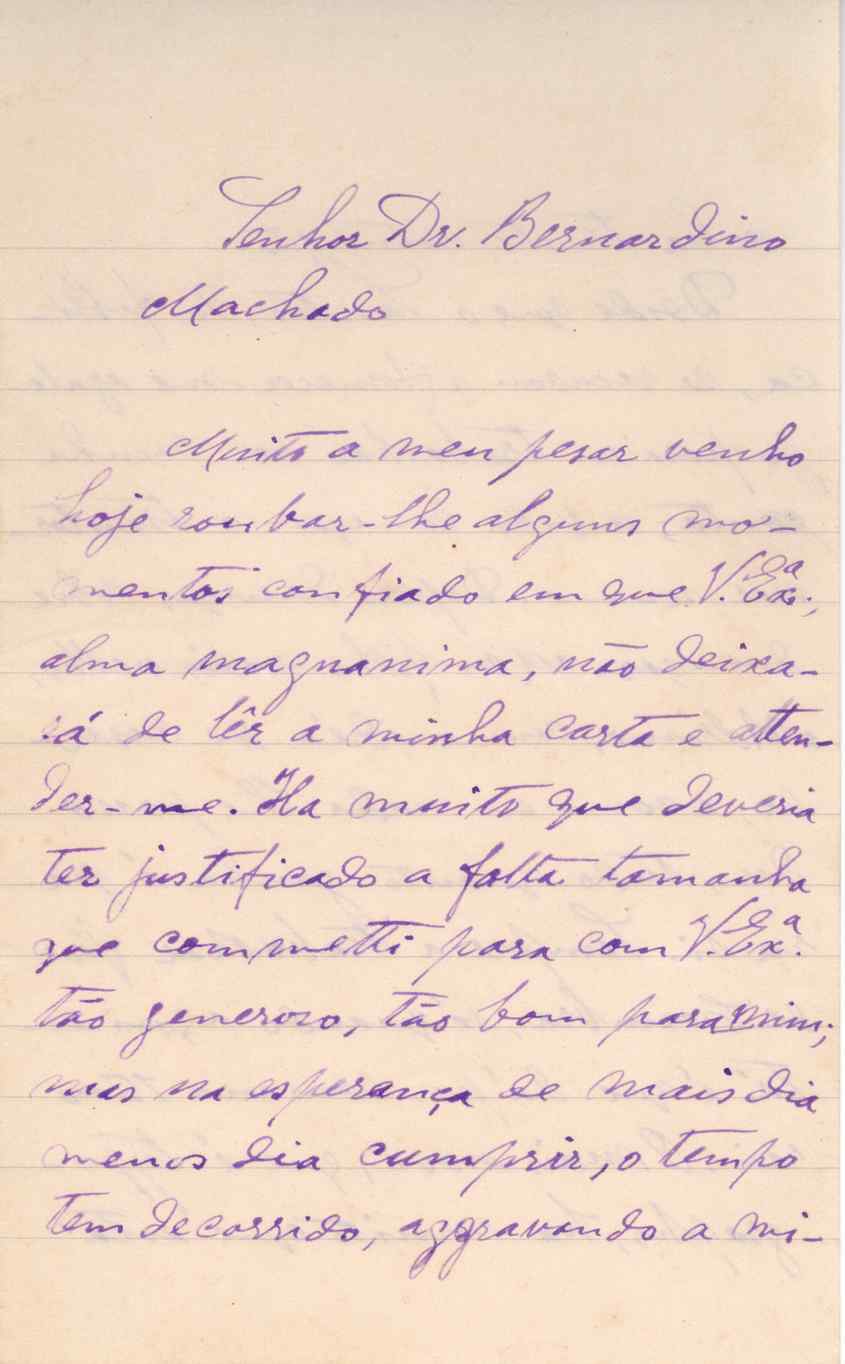 Senhor Dr. Bernardino
Machado
Muito a meu pesar venho
hoje roubar-lhe alguns mo-
mentos confiado em que V. Exª.,
alma magnanima, não deixa-
rá de lêr a minha carta e atten-
der-me. Ha muito que deveria
ter justificado a falta tamanha
que commetti para com V. Exª.
tão generoso, tão bom para mim;
mas na esperança de mais dia
menos dia cumprir, o tempo
tem decorrido, aggravando a mi-